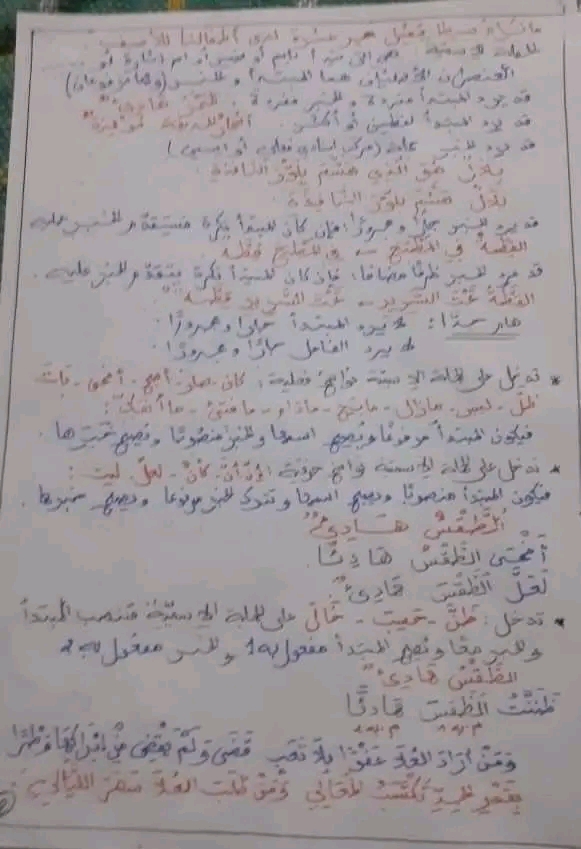 الجملة الاسمية
العنصران الأصليان هما المبتدأ والخبر (وهما مرفوعان)
قد يرد المبتدأ مفردة والخبر مفردة
قد يرد المبتدأ لفظين أو أكثر
قد يرد الخبر جملة (مركب إسنادي فعلي أو اسمي)
بلال هو الذي هشم بلور النافذة
بلال هشم بلور النافذة
قد يرد الخبر جارا ومجرورا: فإن كان المبتدأ نكرة
القطة في المطبخ ← في المطبخ قطة
قد يرد الخبر ظرفا مضافا: فإن كان المبتدأ نكرة والخبر عليه
القطة تحت السرير ← تحت السرير قطة
هام جدا: لا يرد المبتدأ جارا ومجرورا
لا يرد الفاعل جارا ومجرورا
* تدخل على الجملة الاسمية نواسخ فعلية: كان - صار - أصبح - أضحى - بات
ظل - ليس - مازال - مابرح - مادام - مافتئ - ما أنفك:
فيكون المبتدأ مرفوعا ويصبح اسمها والخبر منصوبا ويصبح خبرها.
* تدخل على الجملة الاسمية نواسخ حرفية: إن - أن - كأن - لعل - ليت:
فيكون المبتدأ منصوبا ويصبح اسمها ونترك الخبر مرفوعا ويصبح خبرها.
الطقس هادئ
أضحى الطقس هادئا.
لعل الطقس هادئ
* تدخل: ظن - حسبت - خال على الجملة الاسمية فتنصب المبتدأ
والخبر معا ويصبح المبتدأ مفعول به 1 والخبر مفعول به 2
الطقس هادئ
ظننت الطقس هادئا
م به 1 م به 2
ومن أراد العلا عفوا بلا تعب قضى ولم يقض من إدراكها وطرا
بقدر الجد تكتسب المعالي ومن طلب العلا سهر الليالي